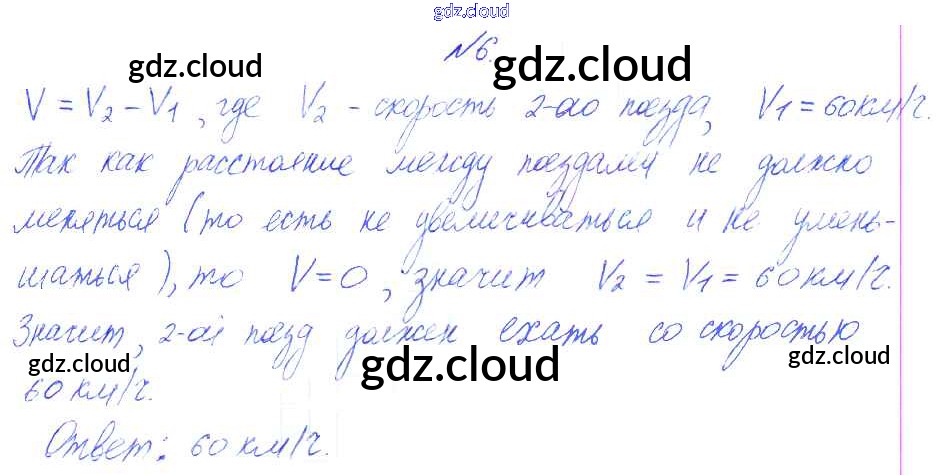 gdz.cloud
№6.
gdz.cloud gdz.cloud
V = V₂ - V₁, где V₂ - скорость 2-ого поезда, V₁ = 60 км/ч.
Так как расстояние между поездами не должно
меняться (то есть не увеличиваться и не умень-
шаться), то V = 0, значит V₂ = V₁ = 60 км/ч.
Значит, 2-ой поезд должен ехать со скоростью
gdz.cloud gdz.cloud gdz.cloud
60 км/ч.
Ответ: 60 км/ч.
gdz.cloud